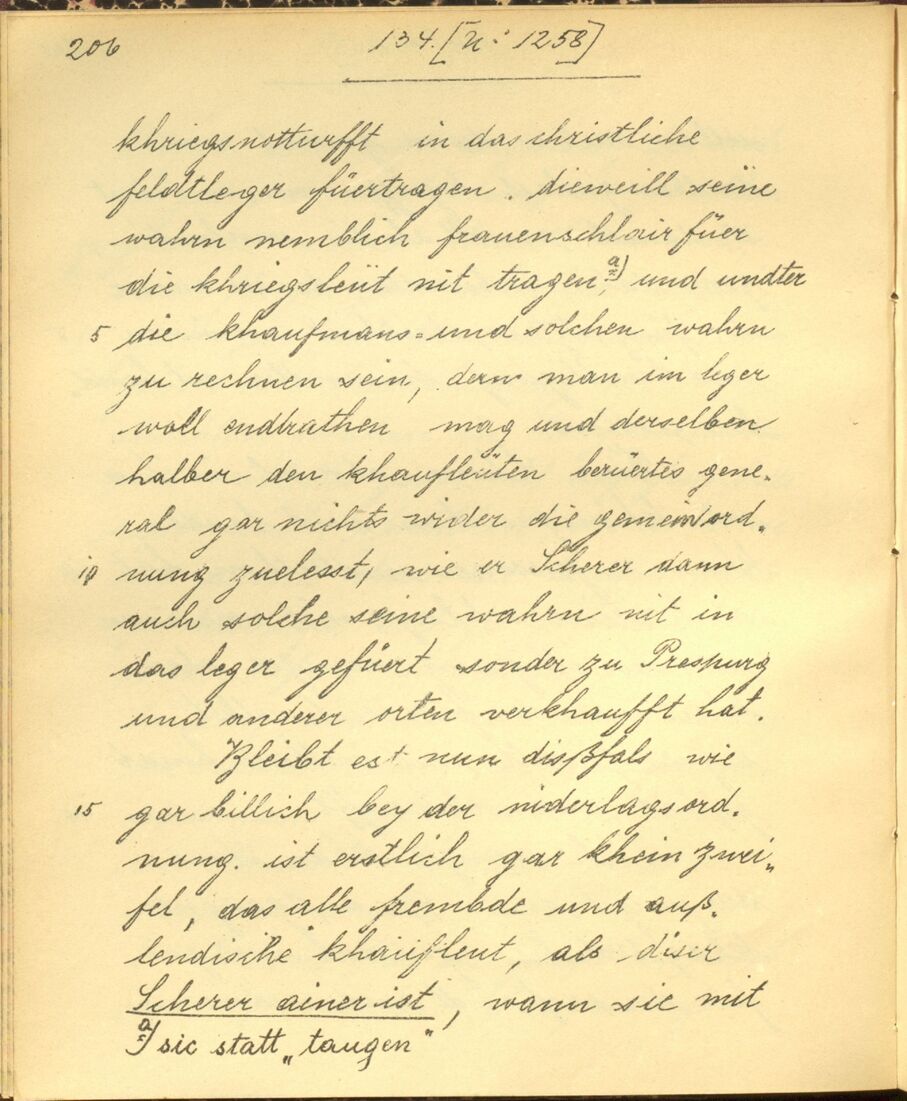 206 134. [N: 1258]
khriegsnotturfft in das christliche
feldtleger füertragen. dieweill seine
wahrn nemblich frauenschlair füer
die khriegsleüt nit tragen, a) und undter
5 die khaufmans- und solchen wahrn
zu rechnen sein, dern man im leger
woll endtrathen mag und derselben
halber den khaufleüten berüertes gene„
ral gar nichts wider die gemein ord„
10 nung zuelesst, wie er Scherer dann
auch solche seine wahrn nit in
das leger gefüert sonder zu Prespurg
und anderer orten verkhaufft hat.
Bleibt est nun dißfals wie
15 gar billich bey der niderlagsord„
nung. ist erstlich gar khein zwei„
fel, das alle frembde und auß„
lendische khaüfleut, als diser
Scherer ainer ist, wann sie mit
a) sic statt „taugen"